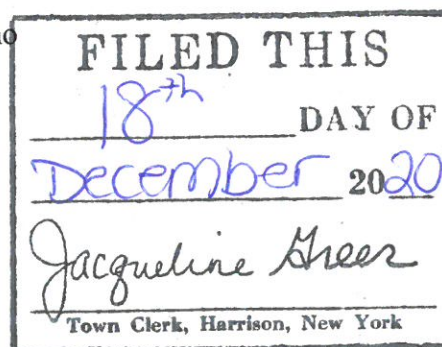 no
FILED THIS
18th DAY OF
December 2020
Jacqueline Greer
Town Clerk, Harrison, New York